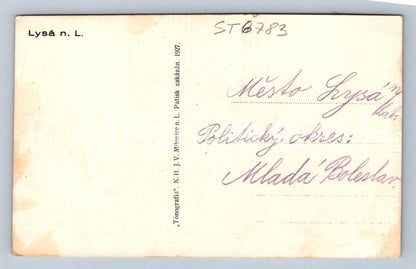 Lysá n. L.
ST 6783
"Tomografia". K. H. J. V. Milovice n. L. Patisk zakázán. 1927.
Město Lysá n/
Lab.
Politický okres:
Mladá Boleslav.